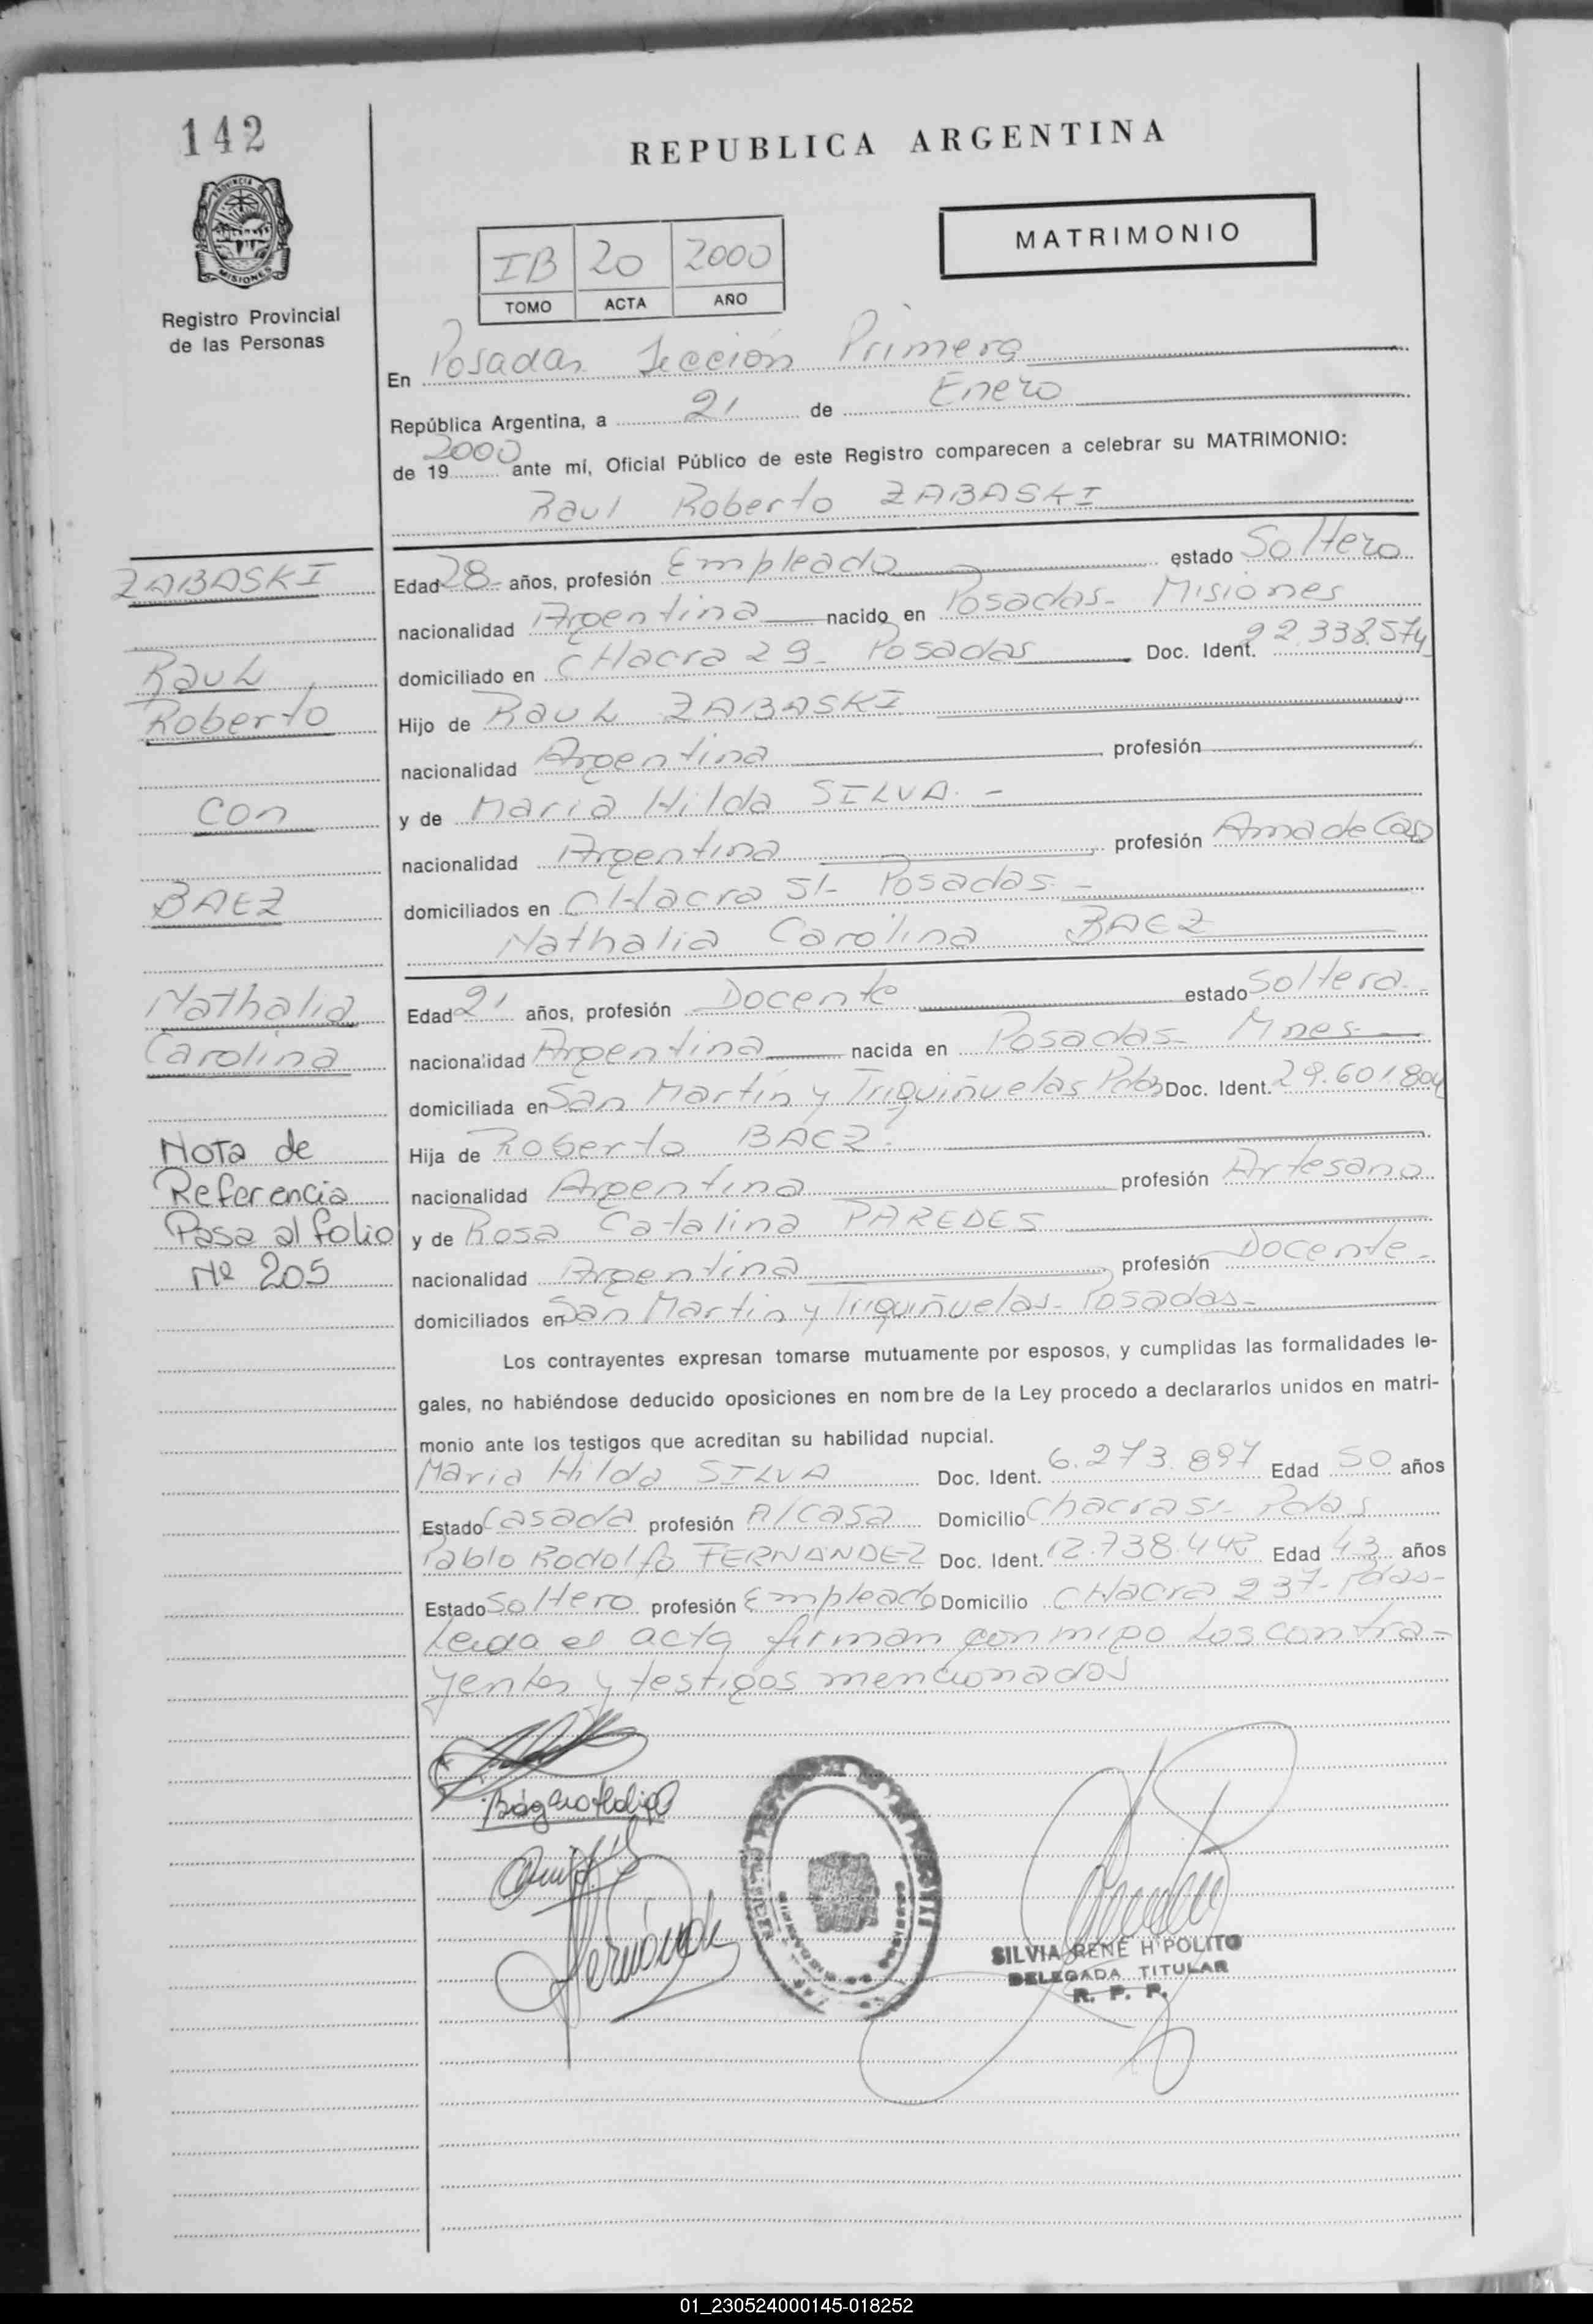 142
REPUBLICA ARGENTINA
PROVINCIA DE
MISIONES
MATRIMONIO
IB 20 2000
TOMO ACTA AÑO
Registro Provincial
de las Personas
En Posadas Sección Primera
República Argentina, a 21 de Enero
de 19 2000 ante mí, Oficial Público de este Registro comparecen a celebrar su MATRIMONIO:
Raul Roberto ZABASKI
ZABASKI
Edad 28- años, profesión Empleado estado Soltero
nacionalidad Argentina nacido en Posadas- Misiones
Raul
domiciliado en CHacra 29- Posadas Doc. Ident. 22.338.574
Roberto
Hijo de Raul ZABASKI
nacionalidad Argentina profesión
con
y de Maria Hilda SILVA.-
nacionalidad Argentina profesión Ama de Casa
BAEZ
domiciliados en CHacra 51- Posadas.-
Nathalia Carolina BAEZ
Nathalia
Edad 21 años, profesión Docente estado Soltera-
Carolina
nacionalidad Argentina nacida en Posadas- Mnes-
domiciliada en San Martín y Triquiñuelas Pdas Doc. Ident. 29.601.804
Nota de
Hija de Roberto BAEZ-
Referencia
nacionalidad Argentina profesión Artesano
Pasa al folio
y de Rosa Catalina PAREDES
Nº 205
nacionalidad Argentina profesión Docente-
domiciliados en San Martin y Triquiñuelas- Posadas-
Los contrayentes expresan tomarse mutuamente por esposos, y cumplidas las formalidades le-
gales, no habiéndose deducido oposiciones en nombre de la Ley procedo a declararlos unidos en matri-
monio ante los testigos que acreditan su habilidad nupcial.
Maria Hilda SILVA Doc. Ident. 6.273.897 Edad 50 años
Estado Casada profesión A/casa Domicilio Chacra 51- Pdas
Pablo Rodolfo FERNANDEZ Doc. Ident. 12.738.448 Edad 43 años
Estado Soltero profesión Empleado Domicilio CHacra 237- Pdas-
Leida el acta firman conmigo los contra-
yentes y testigos mencionados
SILVIA RENE HIPOLITO
DELEGADA TITULAR
R. P. P.
01_230524000145-018252